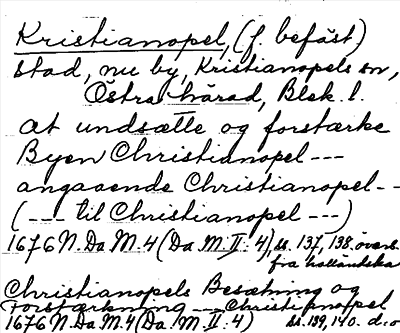 Kristianopel, (f. befäst)
stad, nu by, Kristianopels sn,
Östra härad, Blek. l.
at undsætte og forstærke
Byen Christianopel ---
angaaende Christianopel --
(--- til Christianopel ---)
1676 N.Da M.4 (Da. M. II: 4), ss. 137, 138, övers.
fra holländska
Christianopels Besætning og
Forstærkning --- Christianopel
1676 N.Da M.4 (Da. M. II: 4) ss. 139, 140. d:o